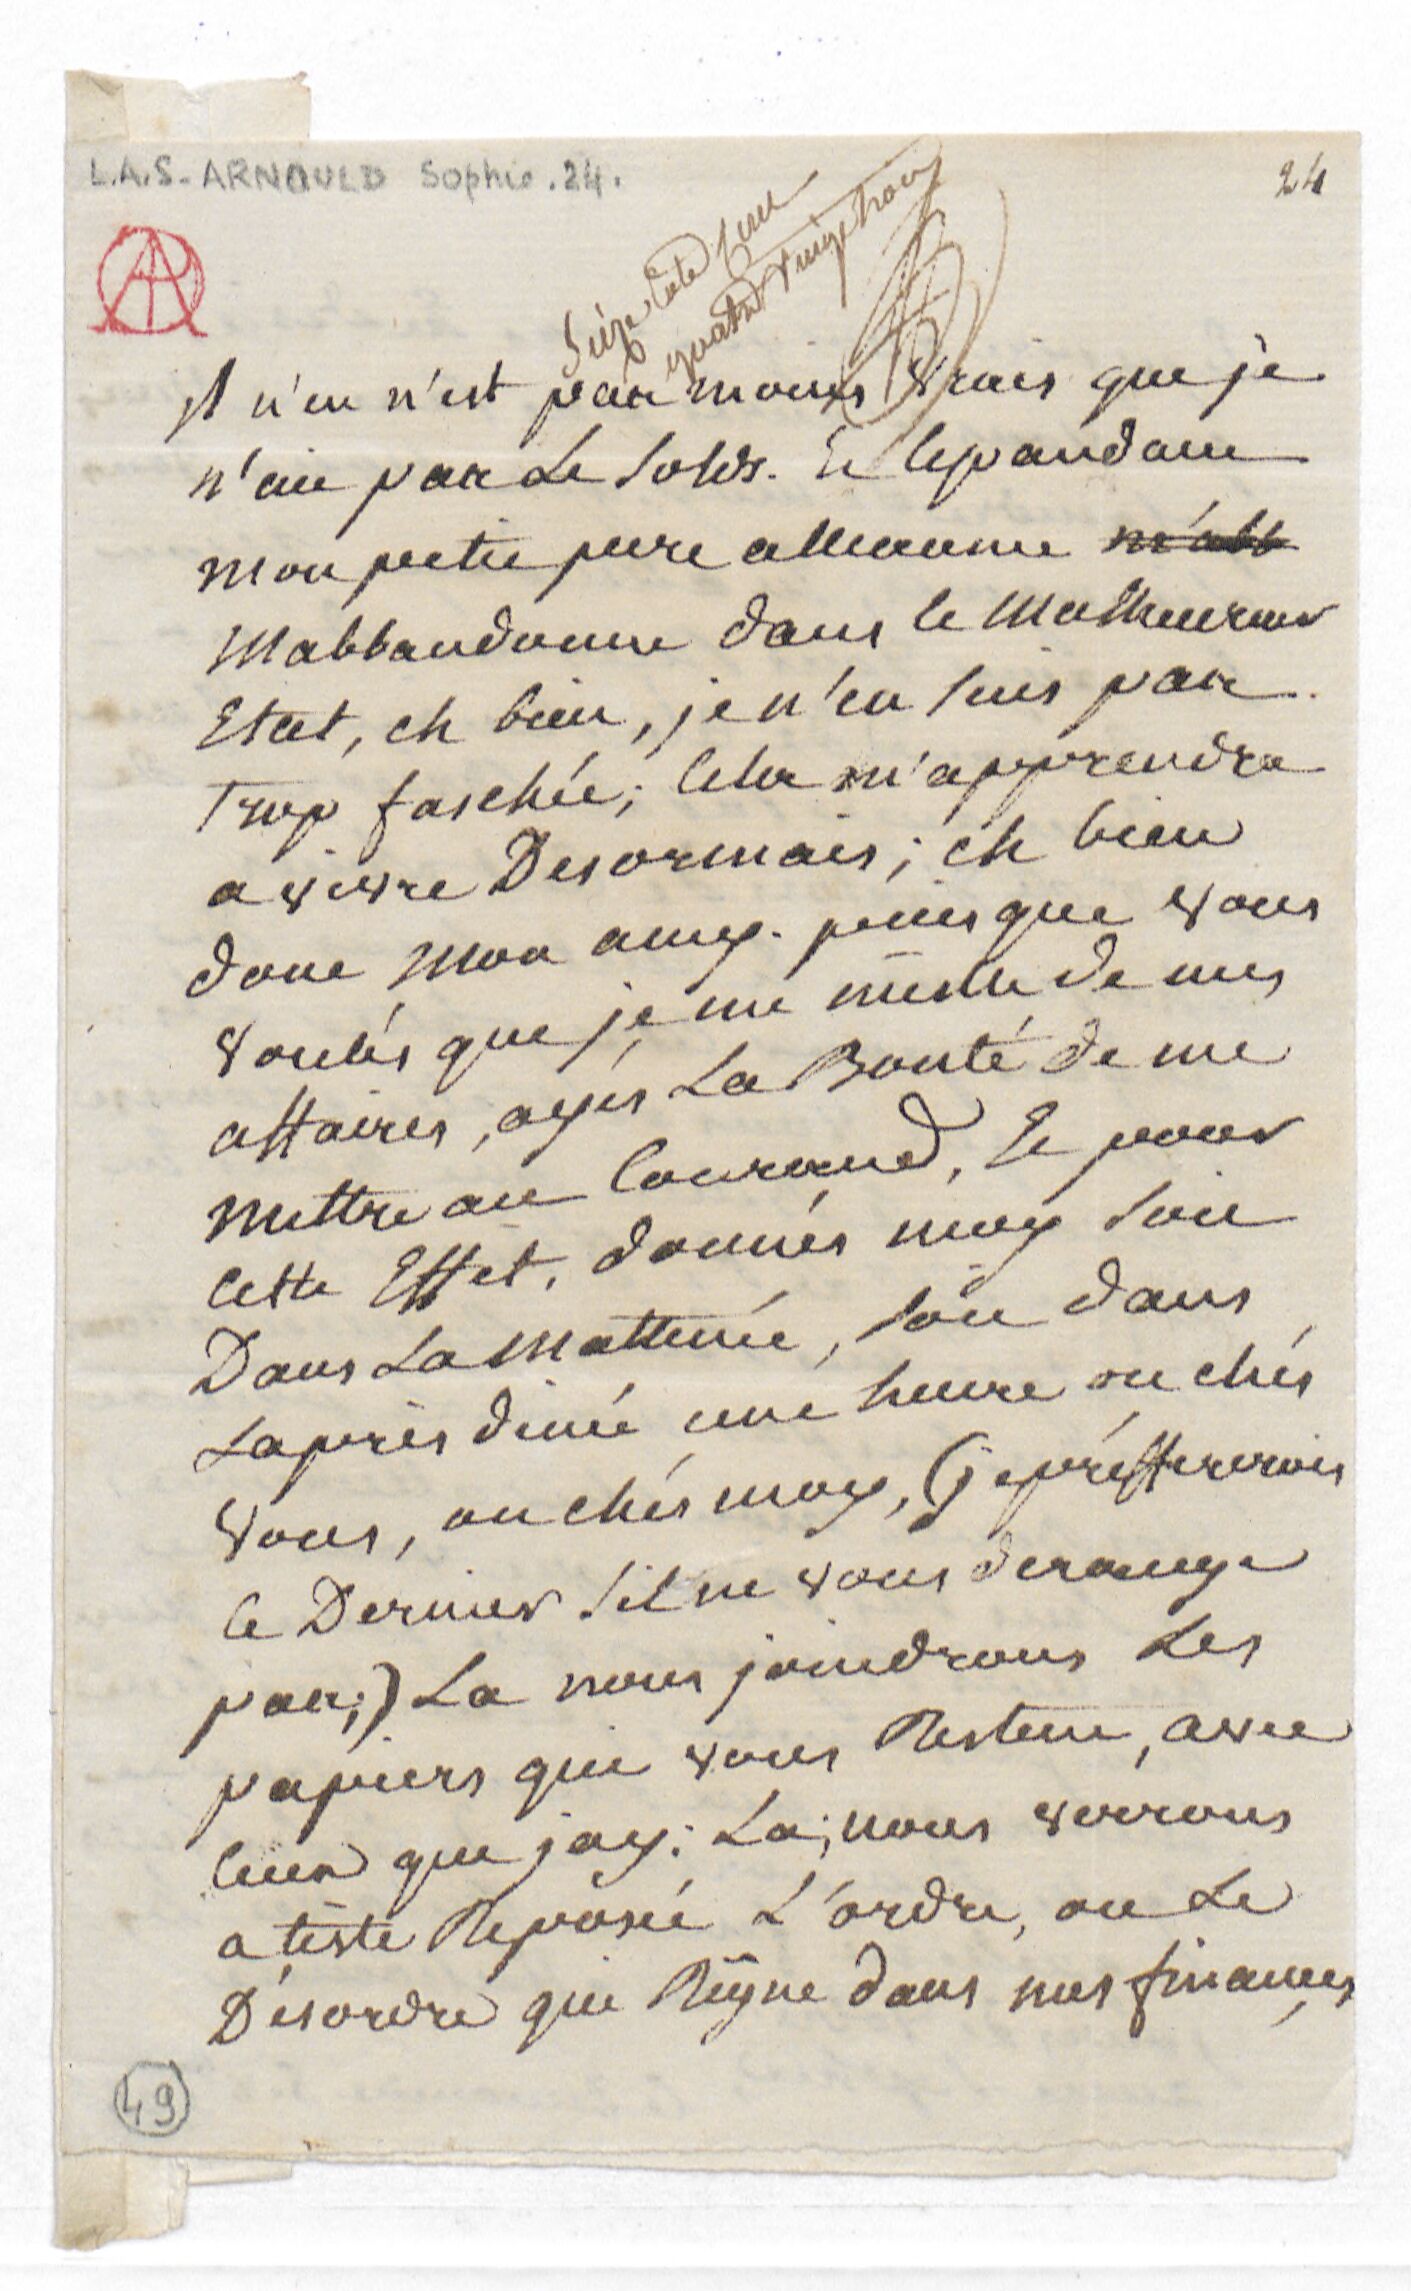 L.A.S. - ARNOULD Sophie. 24.
24
Piece Cote une
quatre vingt trois
Il n'en n'est pas moins vrais que je
n'ai pas Le Sols. Et Cepandant
mon petit pere allemant m'abb
Mabbandonne dans ce Malheureux
Etat, eh bien, je n'en suis pas
Trop faschée; Cela m'apprendra
a vivre Desormais; eh bien
donc Mon amy. puisque vous
voulés que je me mesle de mes
affaires, ayés La Bonté de me
mettre au Courrand, Et pour
Cette Effet, donnés moy soit
Dans La Mattinée, soit dans
Laprès dinée une heure ou chés
vous, ou chés moy, (je préffererois
ce Dernier s'il ne vous derange
pas;) La nous joindrons Les
papiers qui vous Restent, avec
Ceux que jay. La; nous verrons
a tête Reposée L'ordre, ou Le
Désordre qui Règne dans mes finances
49